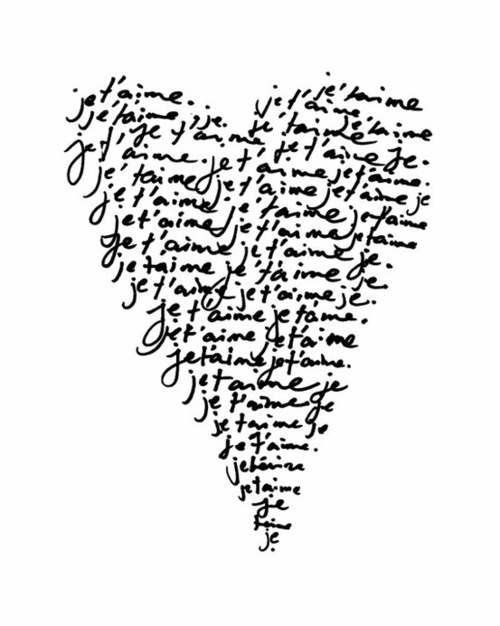 je t'aime. je t'aime je t'aime
je t'aime. je. je t'aime je t'aime
je t'aime je t'aime je.
je t'aime. je t'aime je t'aime.
je t'aime je t'aime je t'aime je
je t'aime je t'aime je t'aime
je t'aime je t'aime je taime
je t'aime je t'aime je.
je taime je t'aime je
je t'aime je t'aime je.
je t'aime je t'aime.
je t'aime je t'aime
je t'aime je t'aime.
je t'aime je
je t'aime je
je taime je
je t'aime.
je taime
je
t'aime
je